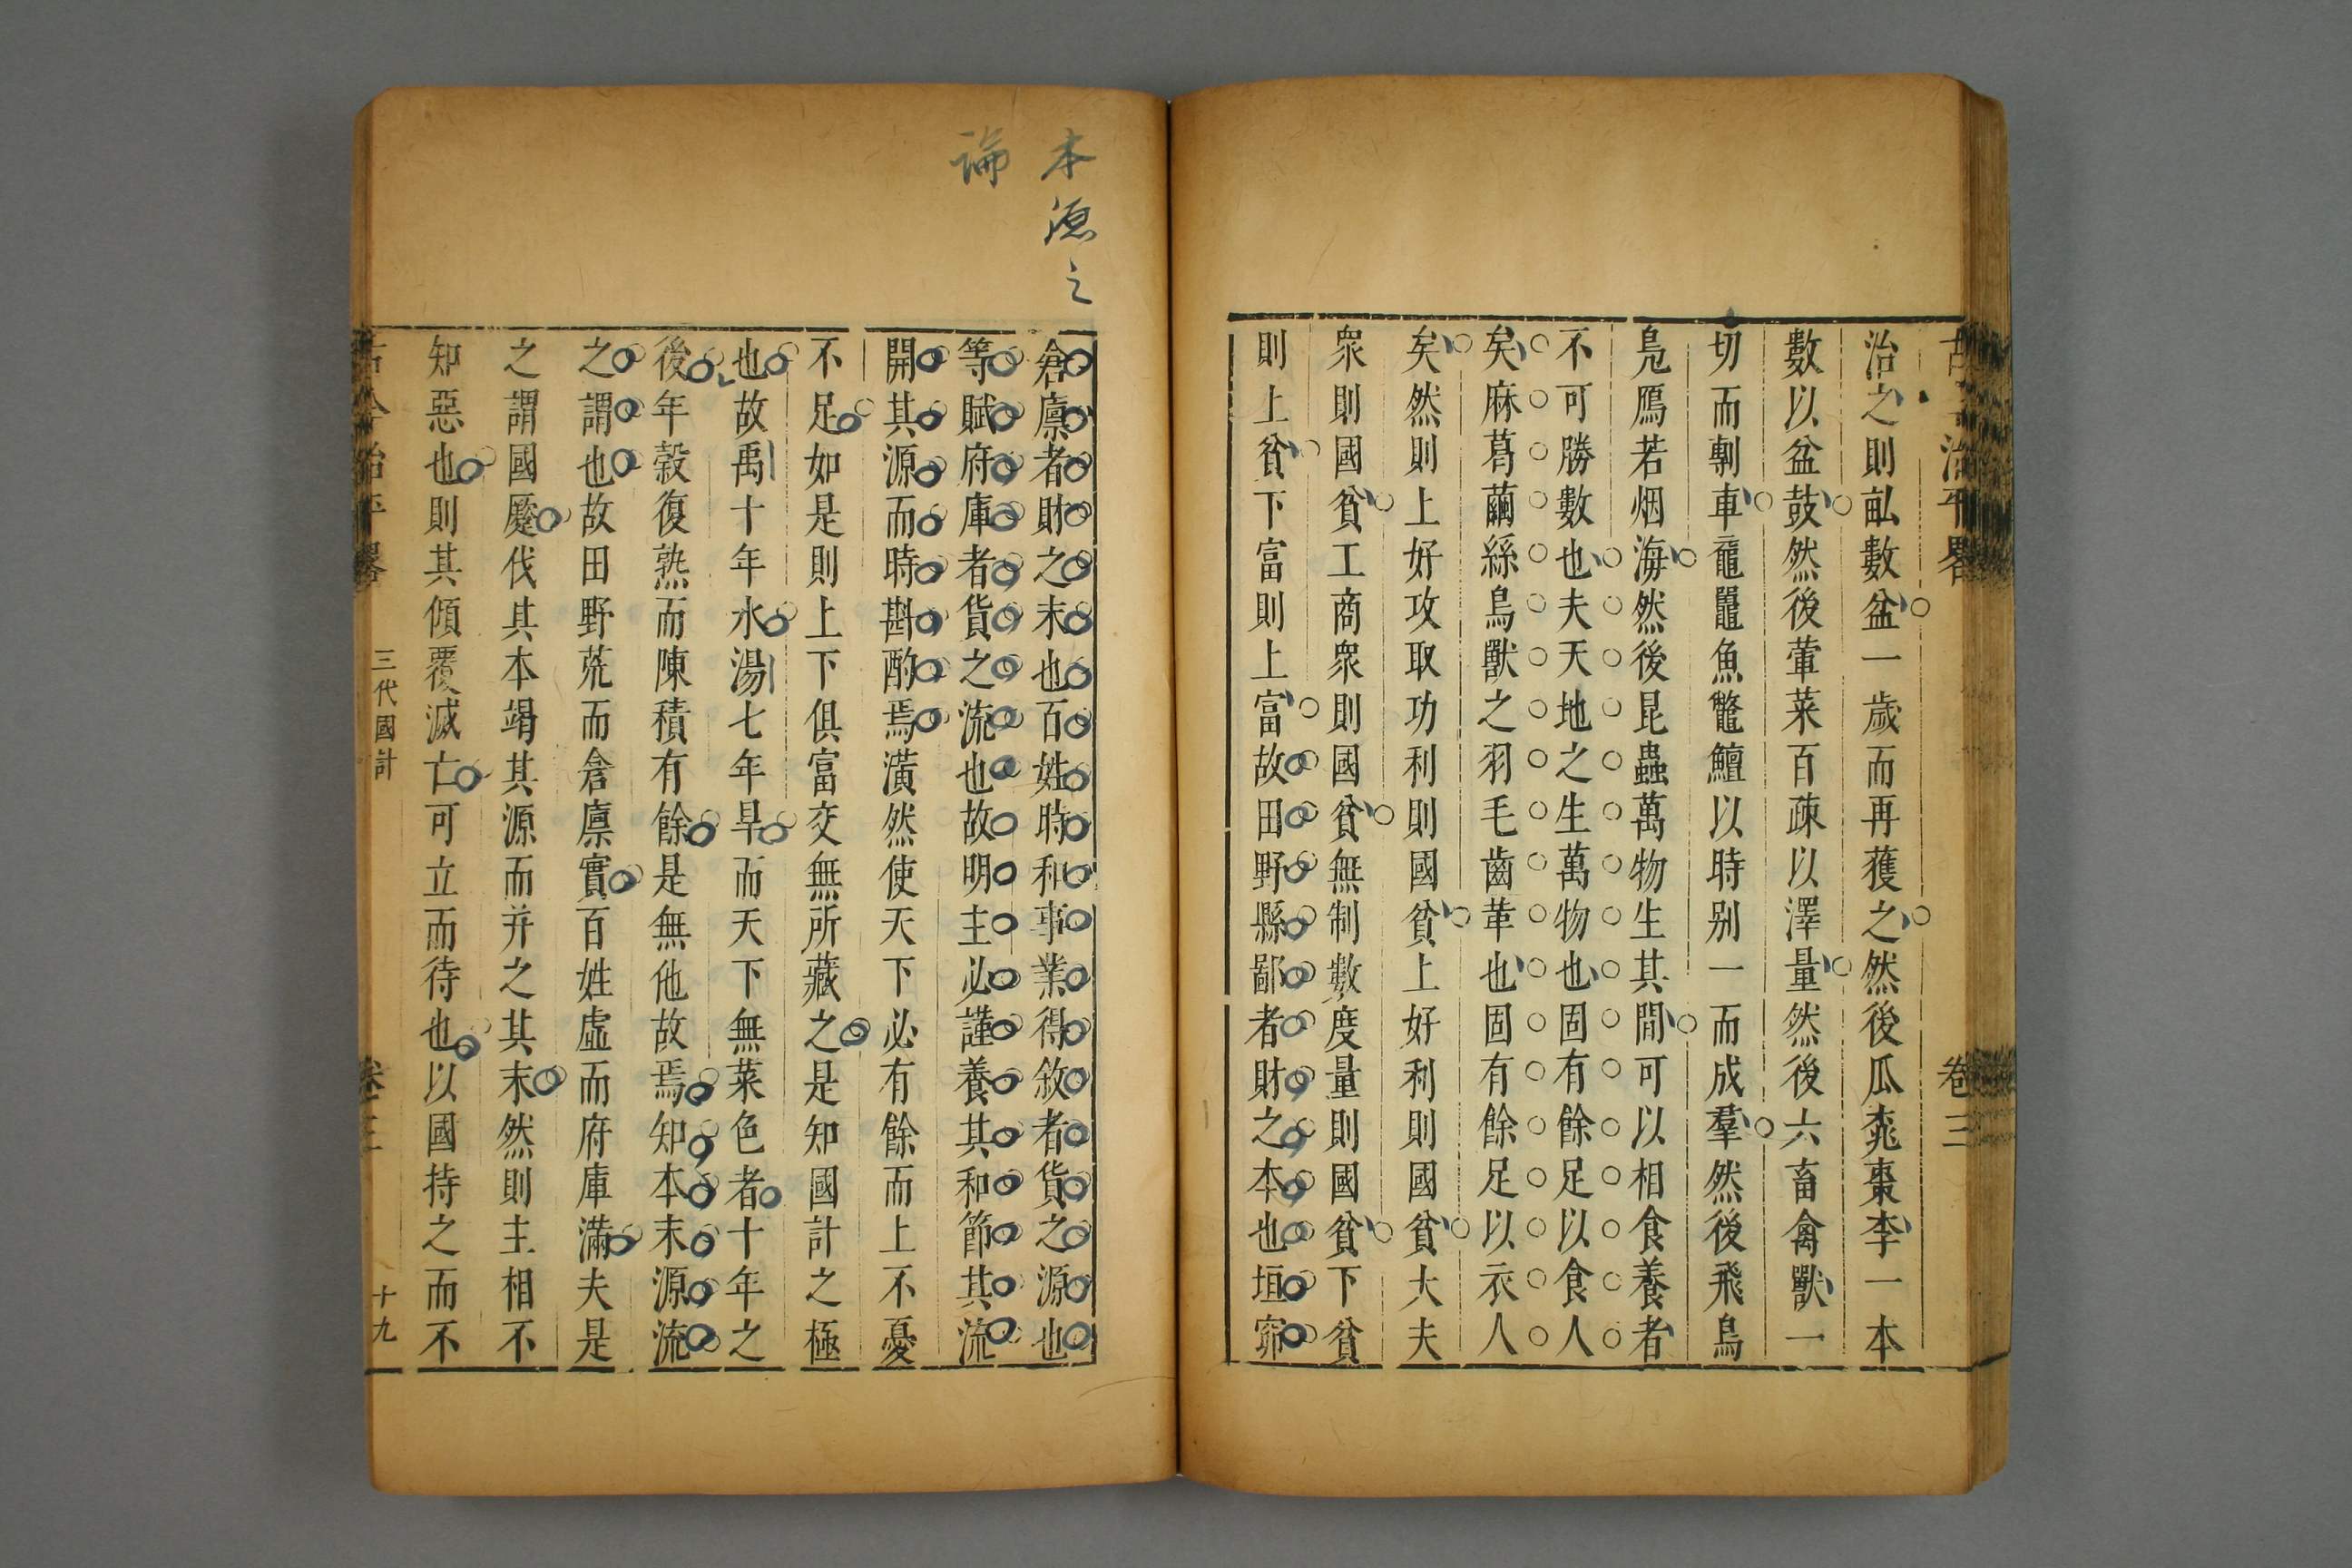 治之則畆數盆一歲而再獲之然後瓜桃棗李一本
數以盆鼓然後葷菜百疎以澤量然後六畜禽獸一
切而剸車黿鼉魚鼈鱣以時别一而成羣然後飛鳥
鳬鴈若烟海然後昆蟲萬物生其間可以相食養者
不可勝數也夫天地之生萬物也固有餘足以食人
矣麻葛繭絲鳥獸之羽毛齒革也固有餘足以衣人
矣然則上好攻取功利則國貧上好利則國貧大夫
衆則國貧工商衆則國貧無制數度量則國貧下貧
則上貧下富則上富故田野縣鄙者財之本也垣窌
卷三
本源之
論
倉廪者財之末也百姓時和事業得敘者貨之源也
等賦府庫者貨之流也故明主必謹養其和節其流
開其源而時斟酌焉潢然使天下必有餘而上不憂
不足如是則上下俱富交無所藏之是知國計之極
也故禹十年水湯七年旱而天下無菜色者十年之
後年穀復熟而陳積有餘是無他故焉知本末源流
之謂也故田野荒而倉廪實百姓虛而府庫滿夫是
之謂國蹷伐其本竭其源而并之其末然則主相不
知惡也則其傾覆滅亡可立而待也以國持之而不
古今治平畧 三代國計 卷三 十九